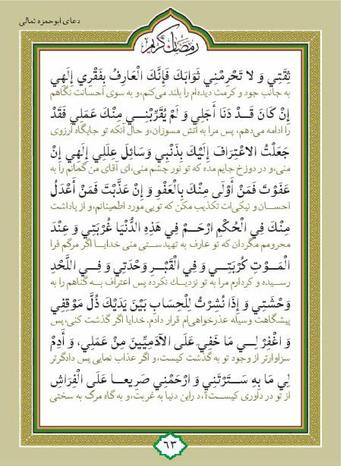 دعای ابوحمزه ثمالی
رمضان کریم
ثِقَتِي وَ لا تَحْرِمْنِي ثَوابَكَ فَإِنَّكَ الْعَارِفُ بِفَقْرِي إِلَهِي
به جانب جود و کرمت دیده‌ام را بلند می‌کنم، و به سوی احسانت نگاهم
إِنْ كَانَ قَدْ دَنَا أَجَلِي وَ لَمْ يُقَرِّبْنِي مِنْكَ عَمَلِي فَقَدْ
را ادامه می‌دهم، پس مرا به آتش مسوزان، و حال آنکه تو جایگاه آرزوی
جَعَلْتُ الاعْتِرَافَ إِلَيْكَ بِذَنْبِي وَسَائِلَ عِلَلِي إِلَهِي إِنْ
منی، و در دوزخ جایم مده که تو نور چشم منی، ای آقای من گمانم را به
عَفَوْتَ فَمَنْ أَوْلَى مِنْكَ بِالْعَفْوِ وَ إِنْ عَذَّبْتَ فَمَنْ أَعْدَلُ
احسان و نیکی‌ات تکذیب مکن که تویی مورد اطمینانم، و از پاداشت
مِنْكَ فِي الْحُكْمِ ارْحَمْ فِي هَذِهِ الدُّنْيَا غُرْبَتِي وَ عِنْدَ
محرومم مگردان که تو عارف به تهیدستی منی خدایا اگر مرگم فرا
الْمَوْتِ كُرْبَتِي وَ فِي الْقَبْرِ وَحْدَتِي وَ فِي اللَّحْدِ
رسیده و کردارم مرا به تو نزدیک نکرده پس اعتراف به گناهم را به
وَحْشَتِي وَ إِذَا نُشِرْتُ لِلْحِسَابِ بَيْنَ يَدَيْكَ ذُلَّ مَوْقِفِي
پیشگاهت وسیله عذرخواهی‌ام قرار دادم. خدایا اگر گذشت کنی، پس
وَ اغْفِرْ لِي مَا خَفِيَ عَلَى الْآدَمِيِّينَ مِنْ عَمَلِي، وَ أَدِمْ
سزاوارتر از وجود تو به گذشت کیست، و اگر عذاب نمایی پس دادگرتر
لِي مَا بِهِ سَتَرْتَنِي وَ ارْحَمْنِي صَرِيعا عَلَى الْفِرَاشِ
از تو در داوری کیست؟، در این دنیا به غربت، و به گاه مرگ به سختی
۶۳